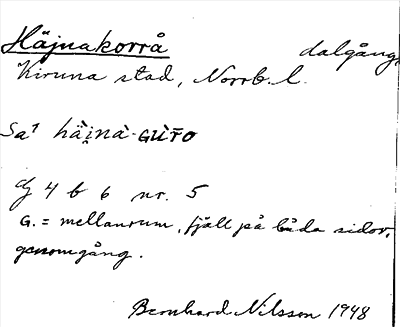 Häjnakorrå dalgång,
Kiruna stad, Norrb. l.
Sa¹ hài̯nà-Gùr̄o
G 4 b 6 nr. 5
G. = mellanrum, fjäll på båda sidor,
genomgång.
Bernhard Nilsson 1948